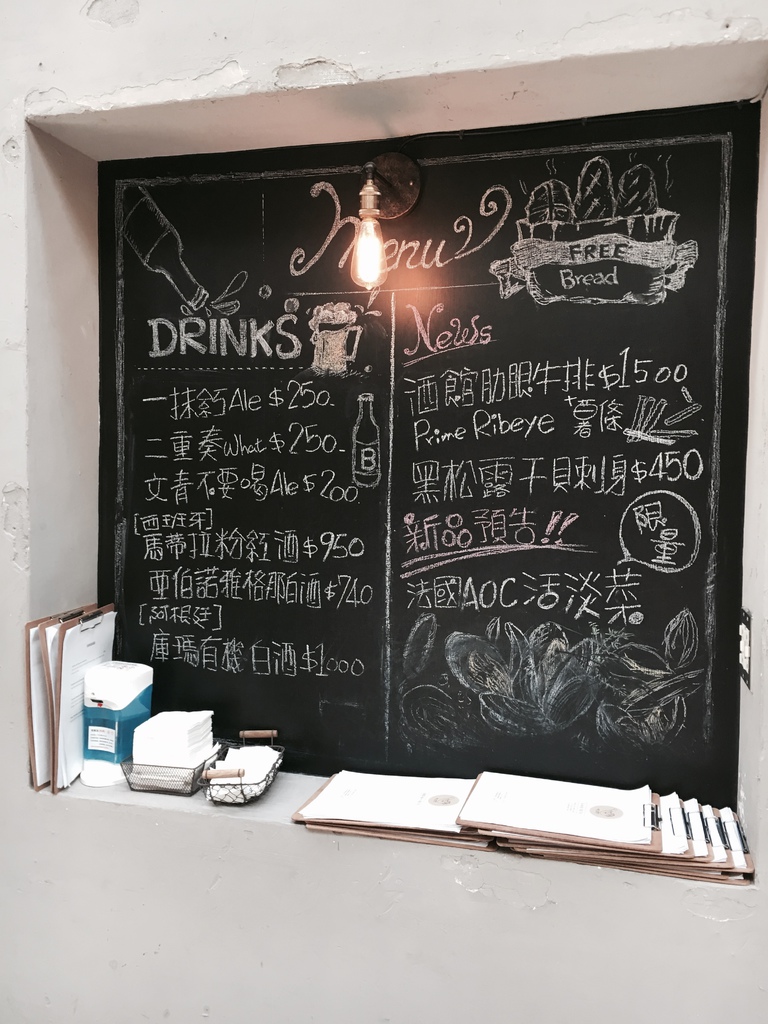 Menu
FREE
Bread
DRINKS
一抹紅Ale $250.
二重奏What $250.
文青不要喝Ale $200.
B
[西班牙]
馬蒂拉粉紅酒 $950
亞伯諾雅格那白酒 $740
[阿根廷]
庫瑪有機白酒 $1000
News
酒館肋眼牛排 $1500
Prime Ribeye +薯條
黑松露干貝刺身 $450
新品預告!!
限量
法國AOC活淡菜